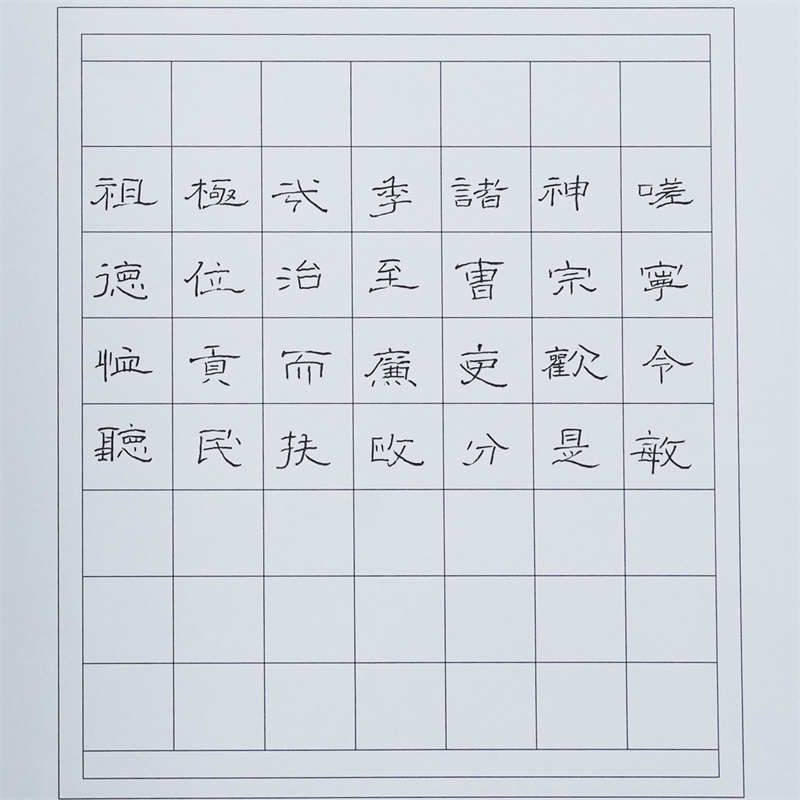 嗟寧令敏
神宗歡是
諸曹吏分
季至廉
治而扶
極位貢民
祖德恤聽